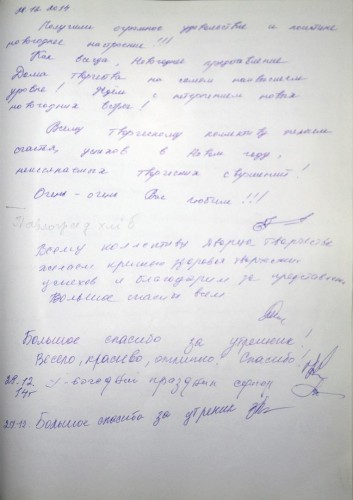 28.12.2014
Получили огромное удовольствие и
новогоднее настроение!!!
Как всегда, Новогоднее представление
Дома творчества на самом наивысшем
уровне! Ждём с нетерпением новых
новогодних встреч!
Всему творческому коллективу желаем
счастья, успехов в Новом году,
творческих свершений!
Очень-очень Вас любим!!!
Павлоград хлеб
Всему коллективу Дворца Творчества
желаем крепкого здоровья творческих
успехов и благодарим за представление.
Большое спасибо всем
Большое спасибо за утренник!
Весело, красиво, отлично! Спасибо!
29.12
14г
праздник
29.12 Большое спасибо за утреник